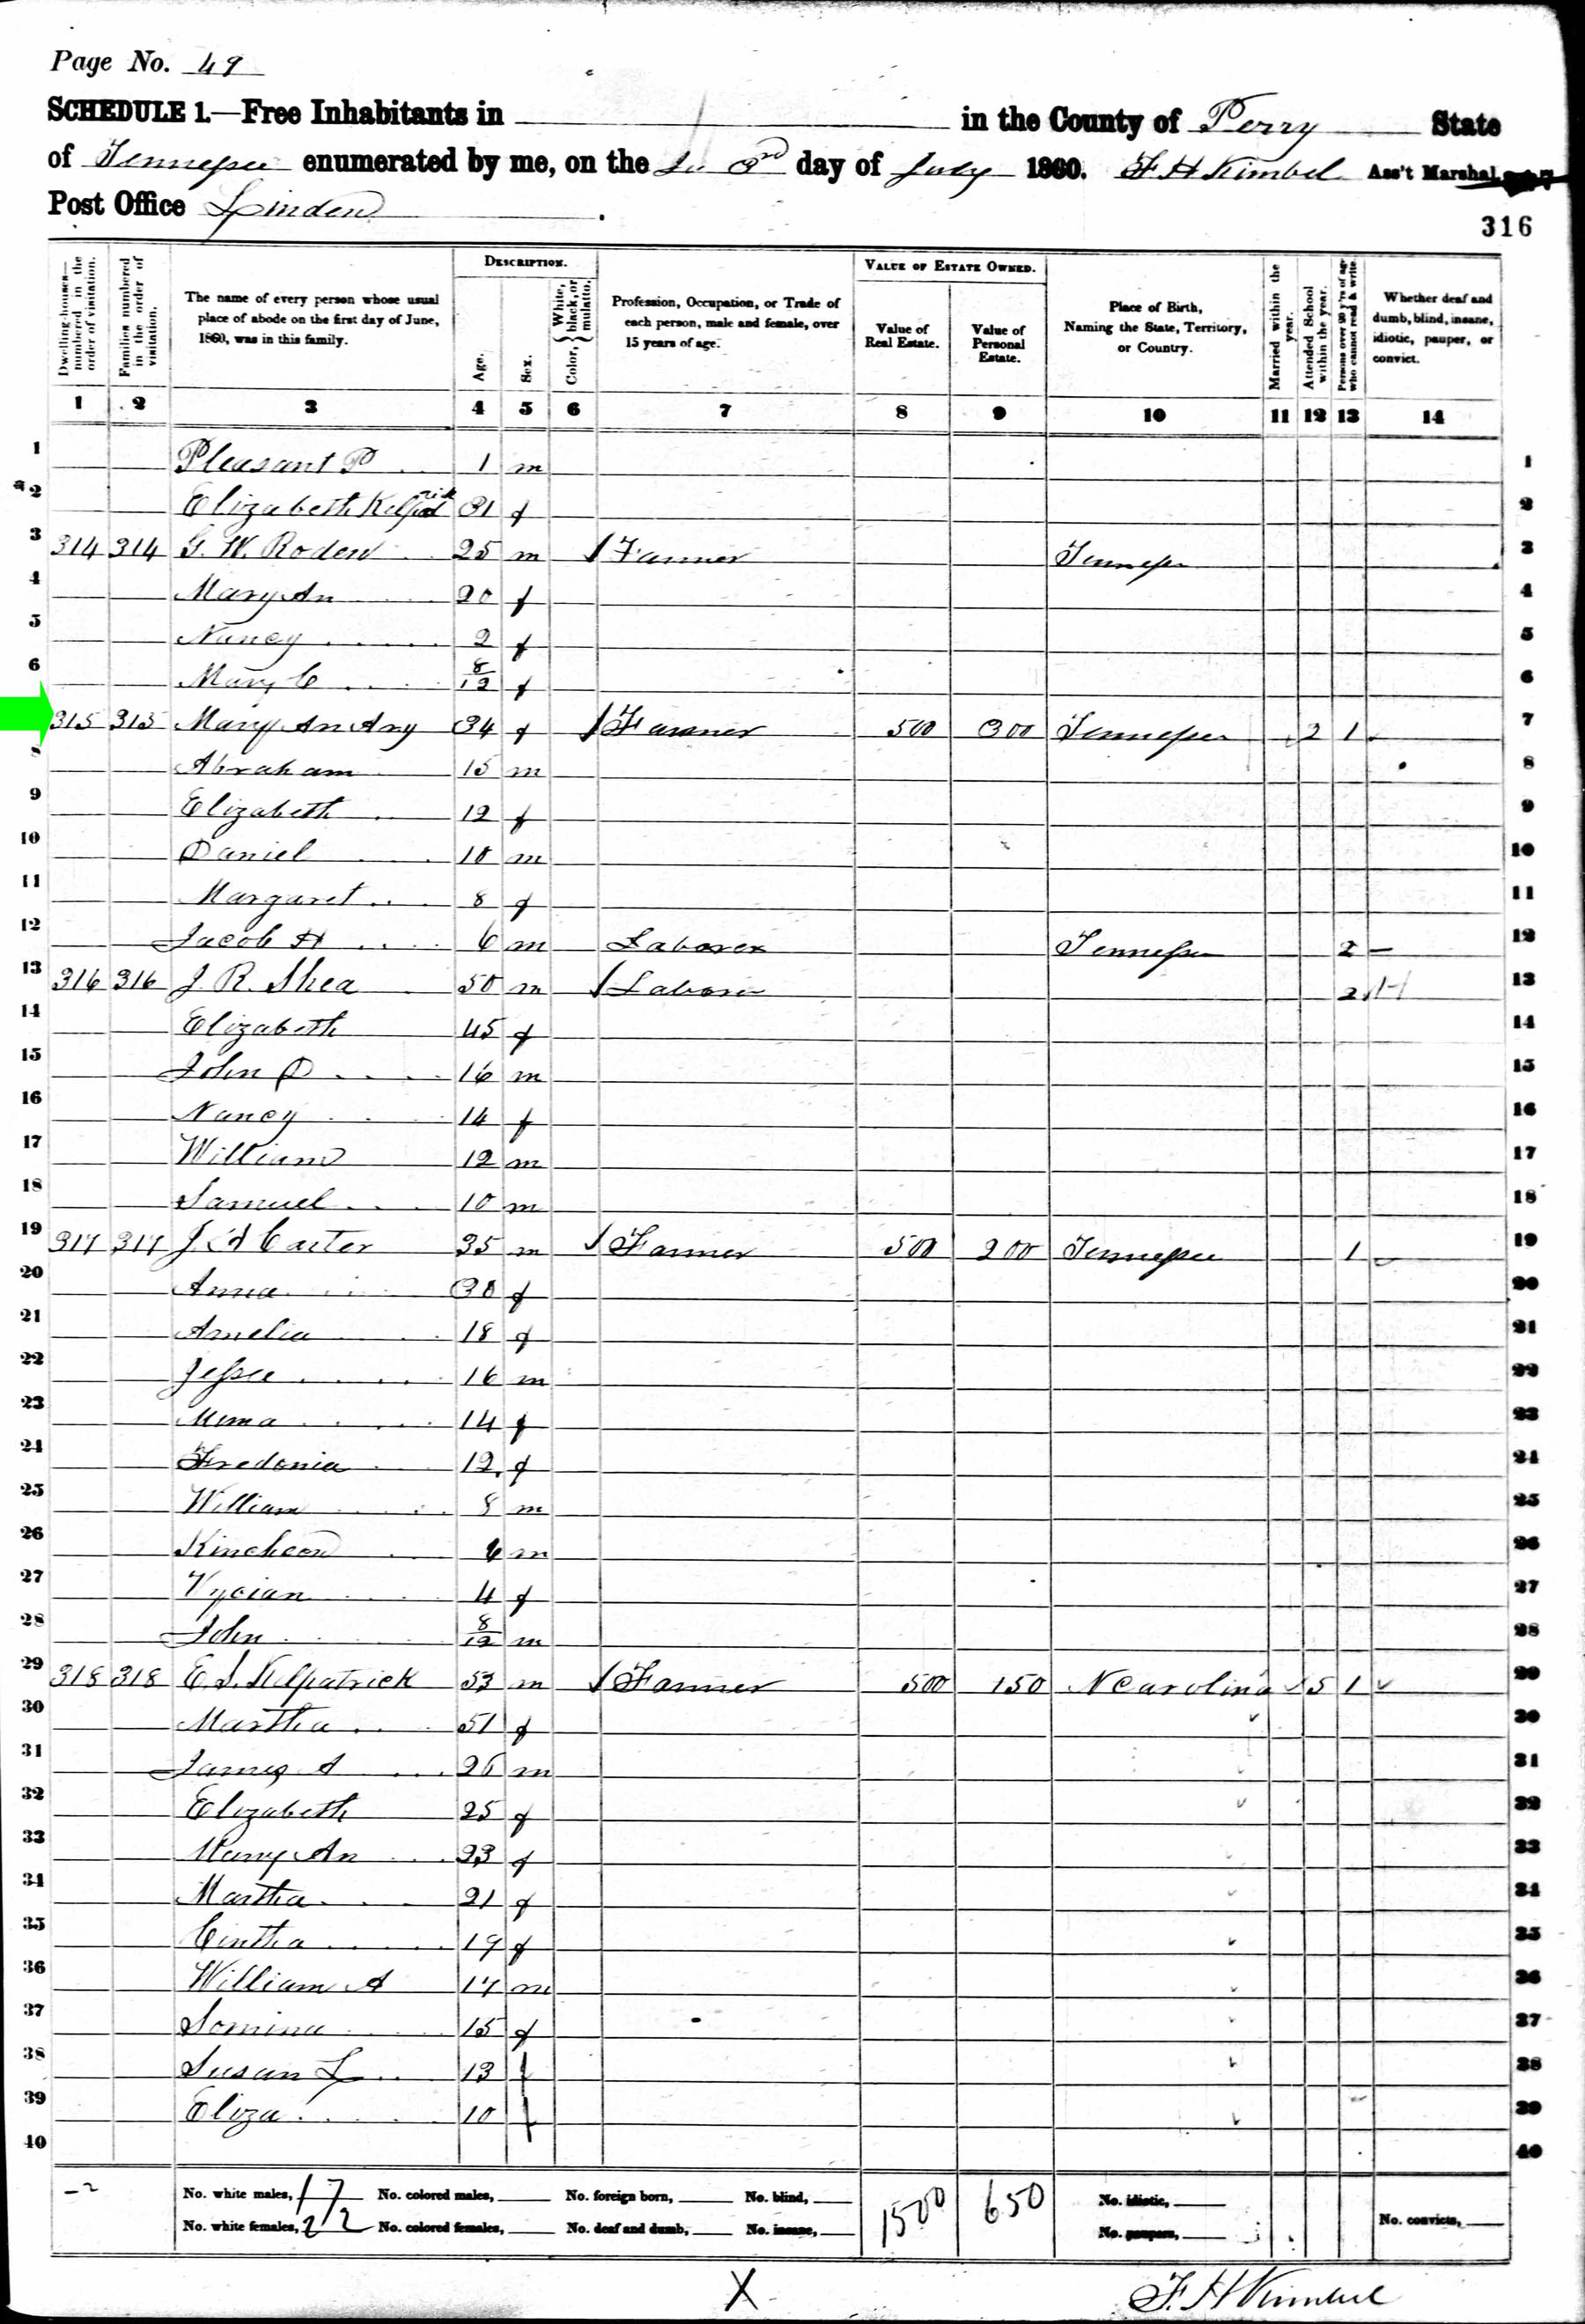 Page No. 49
SCHEDULE 1.—Free Inhabitants in in the County of Perry State
of Tennessee enumerated by me, on the 3rd day of July 1860. F H Kimbel Ass't Marshal
Post Office Linden
316
Dwelling-houses—numbered in the order of visitation.
Families numbered in the order of visitation.
The name of every person whose usual place of abode on the first day of June, 1860, was in this family.
DESCRIPTION.
Age.
Sex.
Color, { White, black, or mulatto.
Profession, Occupation, or Trade of each person, male and female, over 15 years of age.
VALUE OF ESTATE OWNED.
Value of Real Estate.
Value of Personal Estate.
Place of Birth, Naming the State, Territory, or Country.
Married within the year.
Attended School within the year.
Persons over 20 y'rs of age who cannot read & write.
Whether deaf and dumb, blind, insane, idiotic, pauper, or convict.
1 2 3 4 5 6 7 8 9 10 11 12 13 14
1 Pleasant P 1 m 1
2 Elizabeth 31 f 2
3 314 314 G. W. Roden 25 m Farmer Tennessee 3
4 Mary An 20 f 4
5 Nancy 2 f 5
6 Mary C 8/12 f 6
315 315 Mary An Ary 34 f Farmer 500 300 Tennessee 2 1 7
8 Abraham 15 m 8
9 Elizabeth 12 f 9
10 Daniel 10 m 10
11 Margaret 8 f 11
12 Jacob H 6 m Laborer Tennessee 2 12
13 316 316 J. R. Shea 50 m Labore 2 13
14 Elizabeth 45 f 14
15 John D 16 m 15
16 Nancy 14 f 16
17 William 12 m 17
18 Samuel 10 m 18
19 317 317 J A Carter 35 m Farmer 500 200 Tennessee 1 19
20 Anna 30 f 20
21 Amelia 18 f 21
22 Jessee 16 m 22
23 Mima 14 f 23
24 Fredonia 12 f 24
25 William 8 m 25
26 Kincheon 6 m 26
27 Vycian 4 f 27
28 John 8/12 m 28
29 318 318 E. S. Kilpatrick 53 m Farmer 500 150 N Carolina 5 1 29
30 Martha 51 f 30
31 James A 26 m 31
32 Elizabeth 25 f 32
33 Mary An 23 f 33
34 Martha 21 f 34
35 Cintha 19 f 35
36 William A 17 m 36
37 Somina 15 f 37
38 Susan L 13 f 38
39 Eliza 10 f 39
40 40
No. white males, 17 No. colored males, No. foreign born, No. blind, 1500 650 No. idiotic,
No. white females, 22 No. colored females, No. deaf and dumb, No. insane, No. paupers, No. convicts,
X
F. H Kimbel